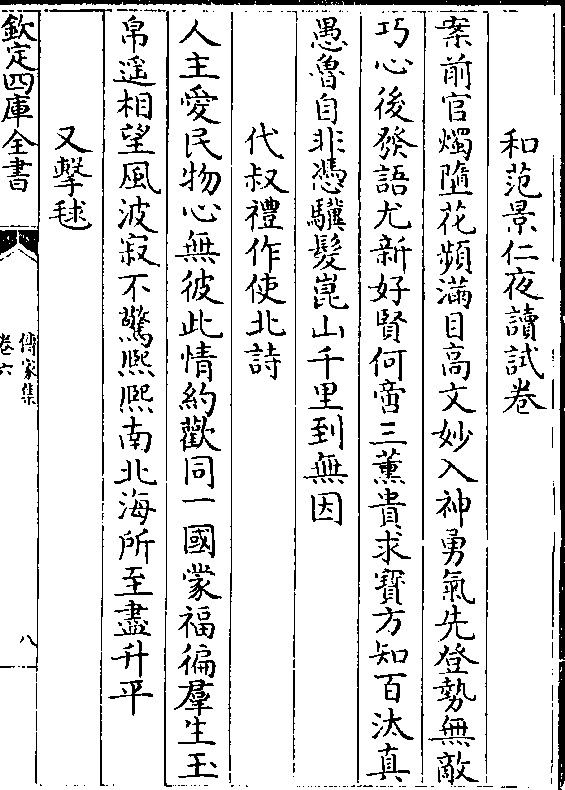 和范景仁夜讀試卷
案前官燭隨花頻滿目高文妙入神勇氣先登勢無敵
巧心後發語尤新好賢何啻三薰貴求寶方知百汰真
愚魯自非憑驥髮崑山千里到無因
代叔禮作使北詩
人主愛民物心無彼此情約歡同一國蒙福徧羣生玉
帛遥相望風波寂不驚熙熙南北海所至盡升平
又擊毬
欽定四庫全書
傳家集
卷六
八